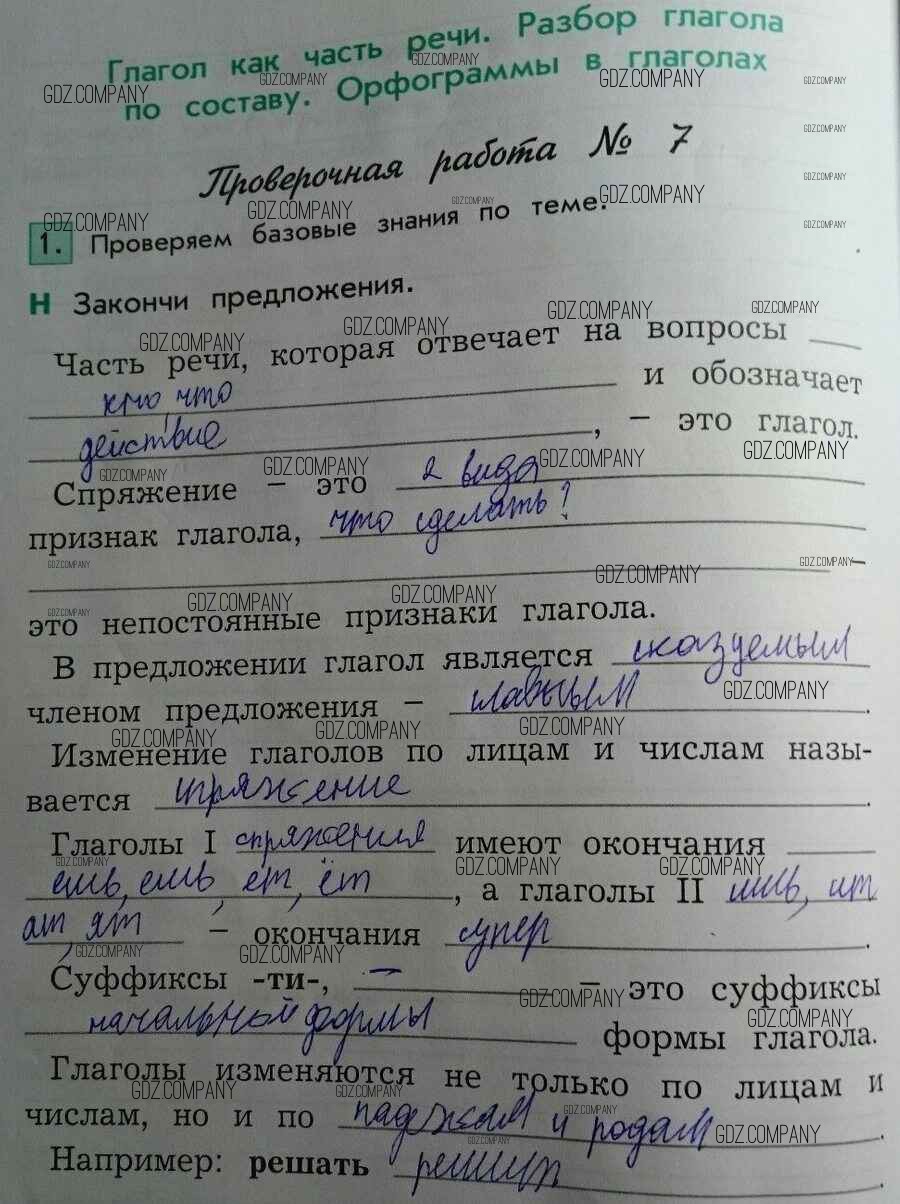 Глагол как часть речи. Разбор глагола
по составу. Орфограммы в глаголах
Проверочная работа № 7
1. Проверяем базовые знания по теме.
Н Закончи предложения.
Часть речи, которая отвечает на вопросы
кто, что и обозначает
действие, – это глагол.
Спряжение – это 2 вида
признак глагола, что сделать?
–
это непостоянные признаки глагола.
В предложении глагол является сказуемым
членом предложения – главным.
Изменение глаголов по лицам и числам назы-
вается спряжение.
Глаголы I спряжения имеют окончания
ешь, ешь, ет, ёт, а глаголы II ишь, ит
ат, ят – окончания супер.
Суффиксы -ти-, — – это суффиксы
начальной формы формы глагола.
Глаголы изменяются не только по лицам и
числам, но и по падежам и родам.
Например: решать решил.
GDZ.COMPANY